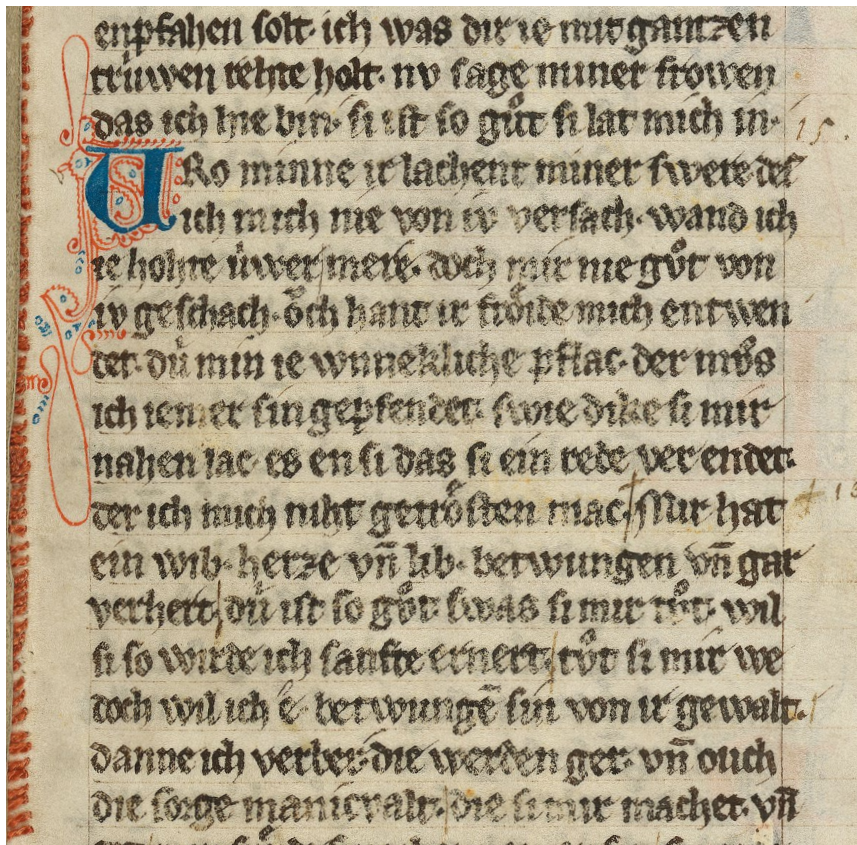 enpfahen solt· ich was dir ie mit gantzen
trúwen rehte holt· nv sage miner frowen
das ich hie bin· si ist so gůt si lat mich in· 15.
VRo minne ir lachent miner swere des
ich mich nie von iv versach· wand ich
ie hohte úwer mere· doch mir nie gůt von
iv geschach· ǒch hant ir frǒide mich entwen
det· dú min ie wunnekliche pflac· der mvͦs
ich iemer sin gepfendet· swie dike si mir
nahen lac· es en si das si ein rede ver endet·
der ich mich niht getrǒsten mac· Mir hat 16
ein wib· herze vn̄ lib· betwungen vn̄ gar
verhert· dú ist so gůt· swas si mir tůt· wil
si so wirde ich sanfte ernert· tůt si mir we
doch wil ich e· betwungē sin von ir gewalt·
danne ich verber· die werden ger· vn̄ ouch
die sorge manicvalt· die si mir machet· vn̄